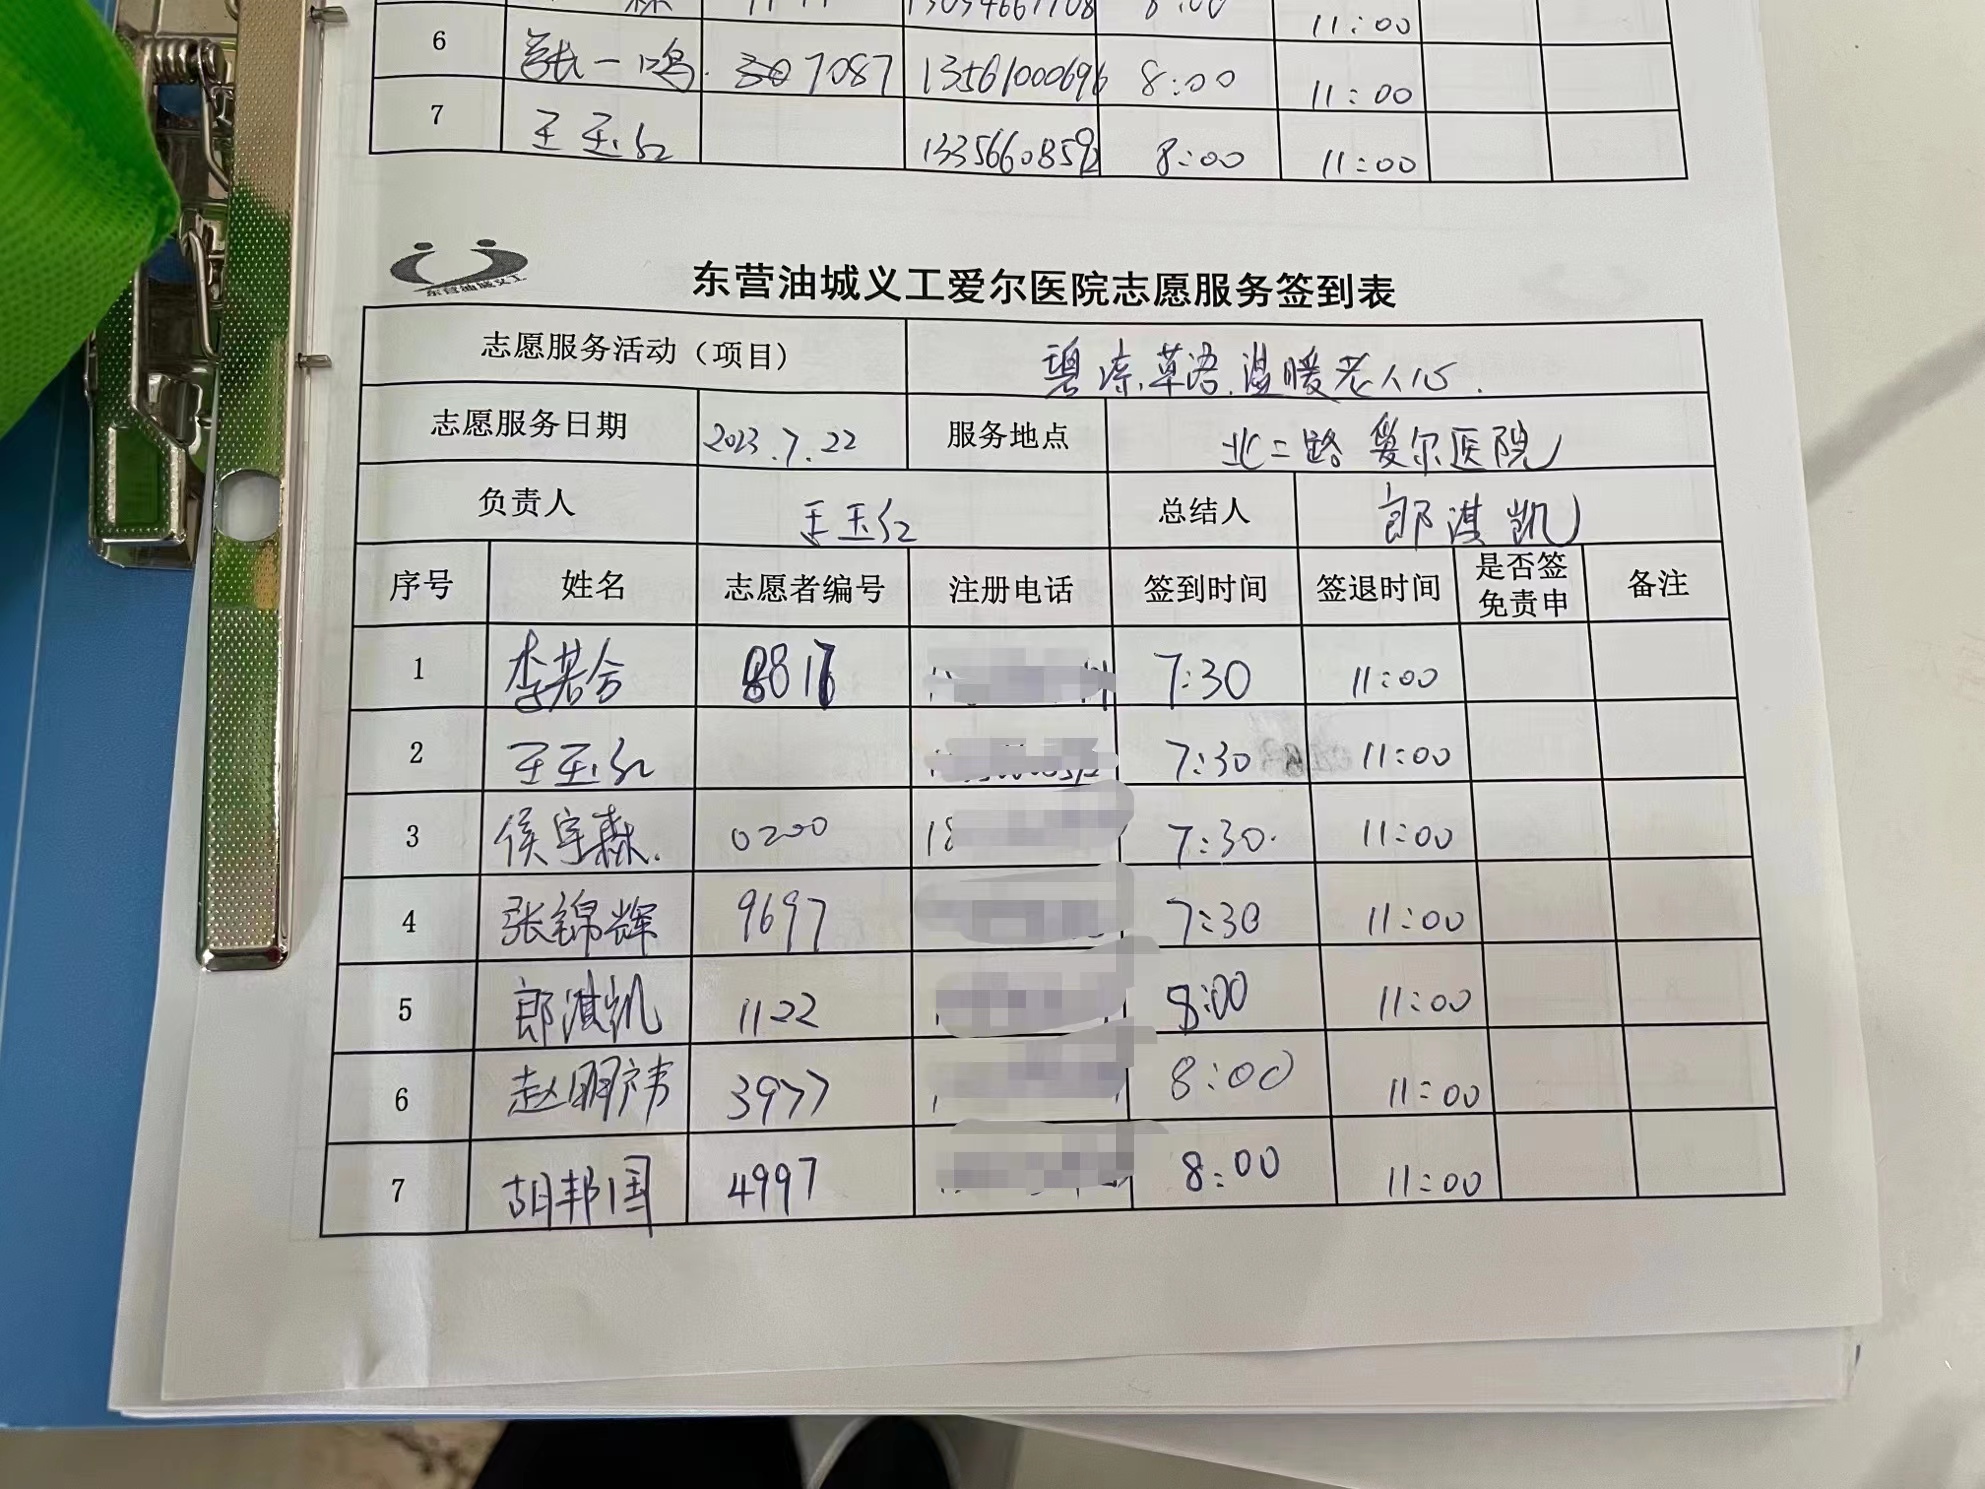 11:00
6 一鸣 7087 13561000696 8:00 11:00
7 王玉红 13356608592 8:00 11:00
东营油城义工
东营油城义工爱尔医院志愿服务签到表
志愿服务活动（项目） 碧凑草语.温暖老人心.
志愿服务日期 2023.7.22 服务地点 北二路爱尔医院
负责人 王玉红 总结人 郎淇凯
序号 姓名 志愿者编号 注册电话 签到时间 签退时间 是否签免责申 备注
1 李若含 8817 7:30 11:00
2 王玉红 7:30 11:00
3 侯宇森. 0200 18 7:30. 11:00
4 张锦辉 9697 7:30 11:00
5 郎淇凯 1122 8:00 11:00
6 赵明祎 3977 8:00 11:00
7 胡邦国 4997 8:00 11:00